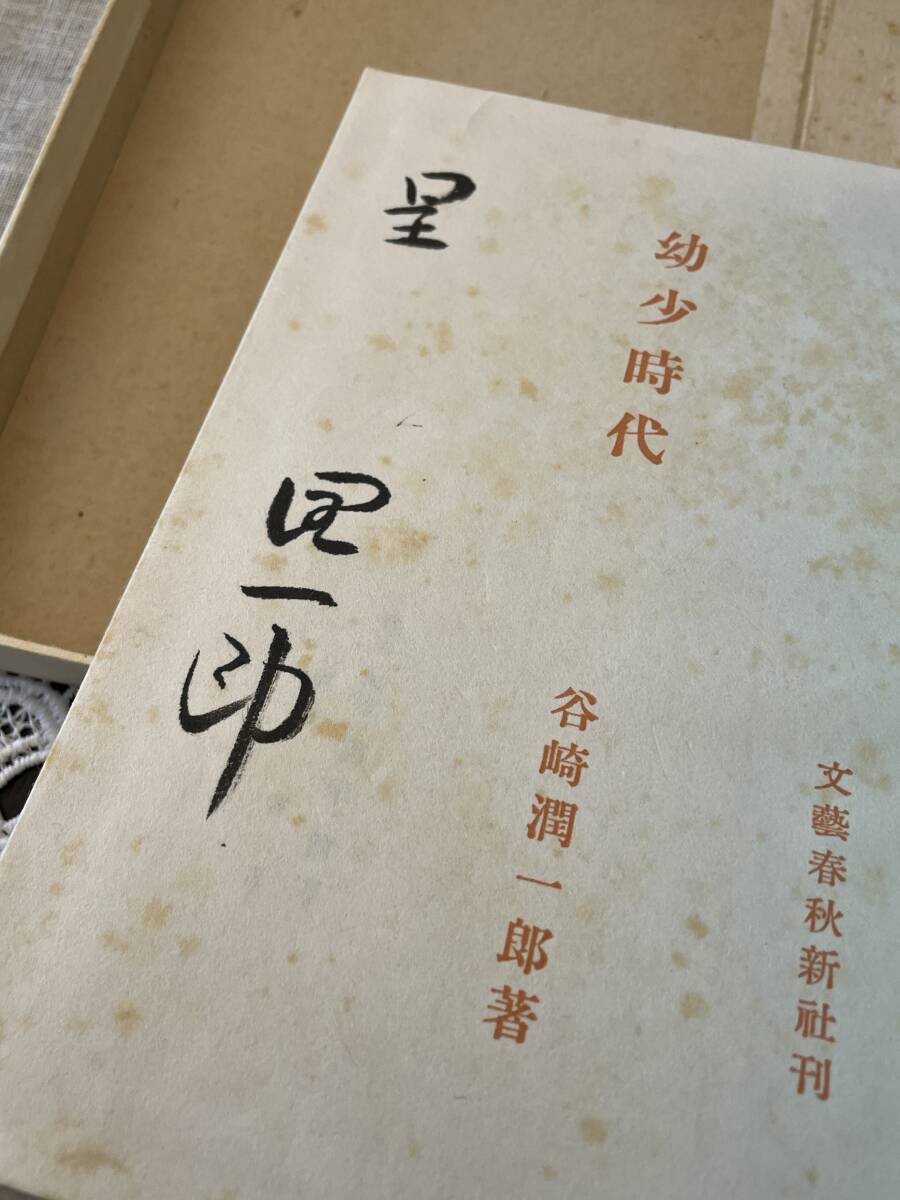 文藝春秋新社刊
幼少時代
谷崎潤一郎著
呈
潤一郎